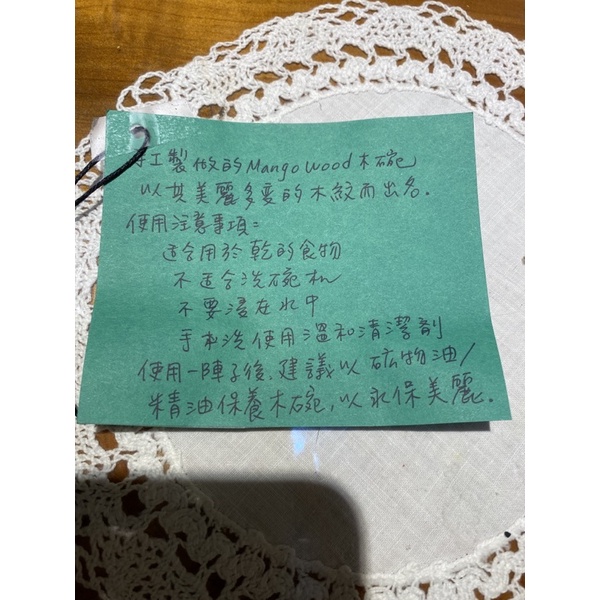 手工製做的Mango Wood木碗
以其美麗多變的木紋而出名.
使用注意事項:
適合用於乾的食物
不適合洗碗机
不要浸在水中
手本洗使用溫和清潔劑
使用一陣子後, 建議以砿物油/
精油保養木碗, 以永保美麗.